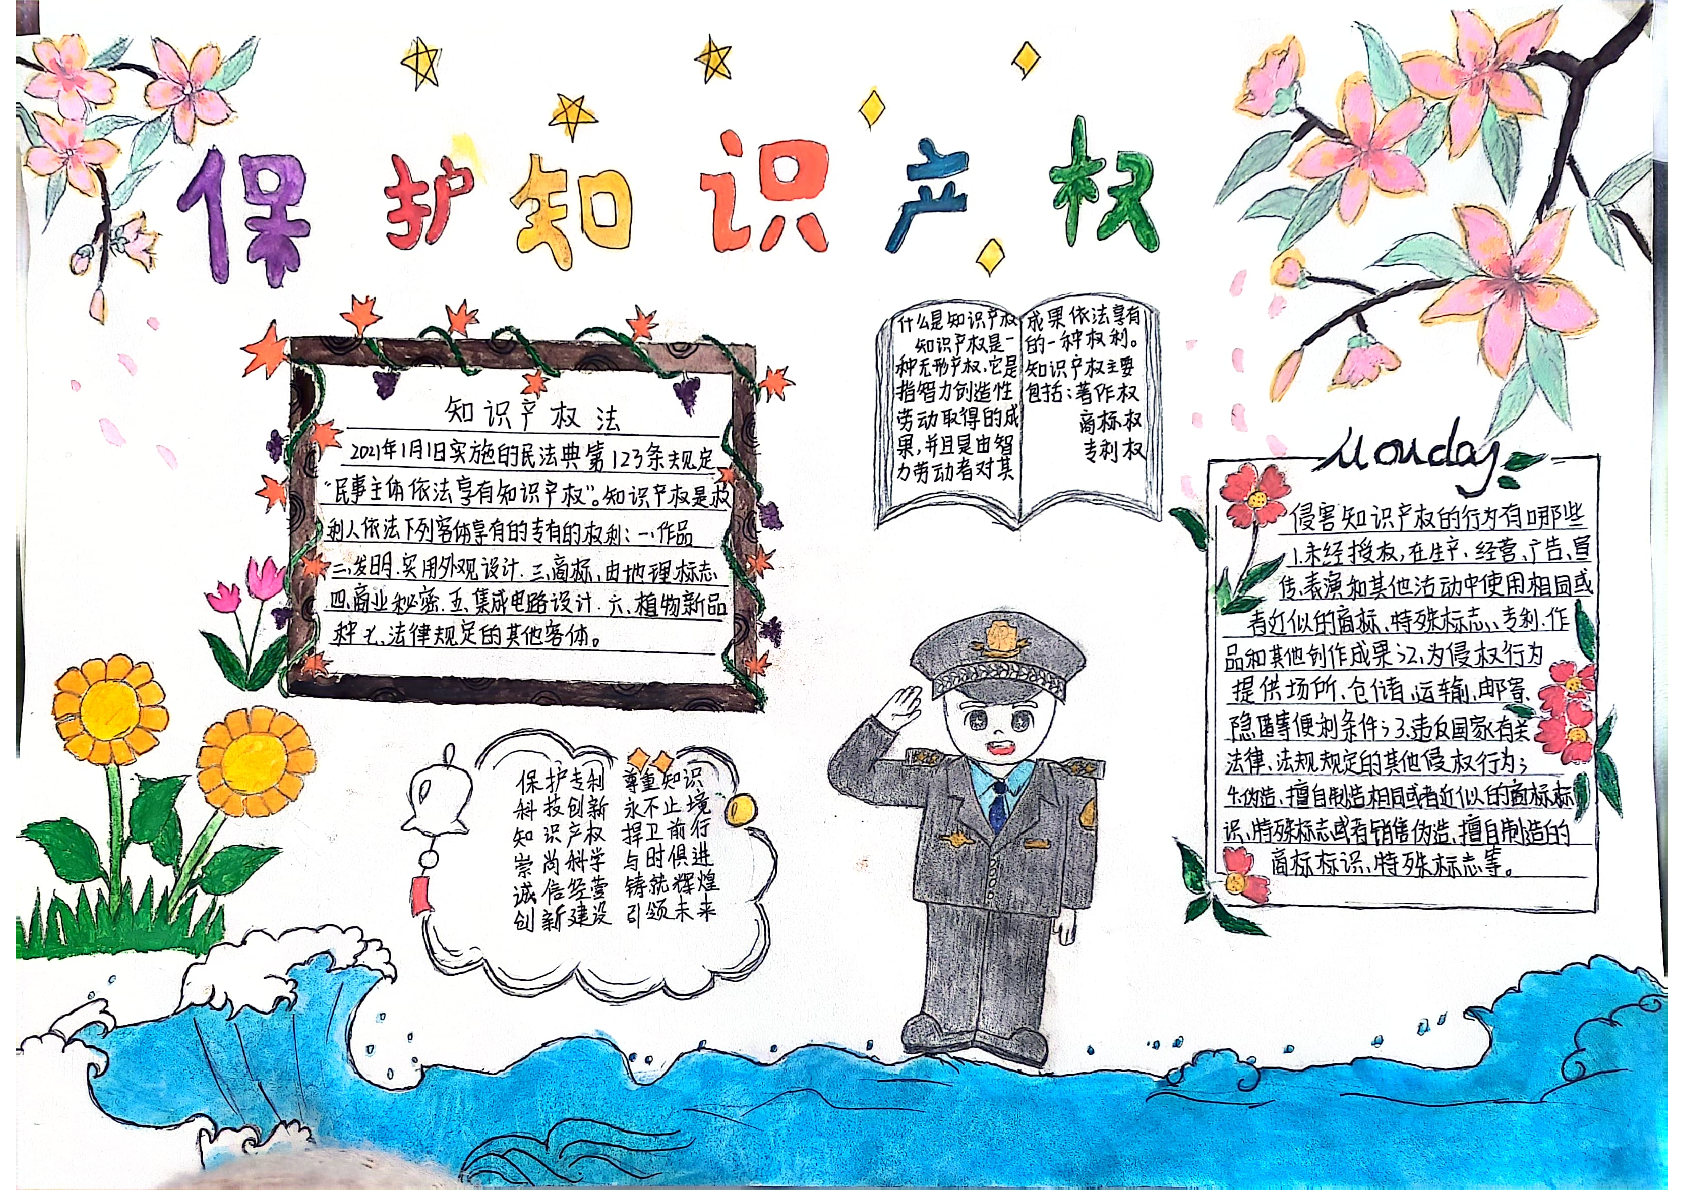 保护知识产权
知识产权法
2021年1月1日实施的民法典第123条规定
“民事主体依法享有知识产权”。知识产权是权
利人依法下列客体享有的专有的权利：一、作品
二、发明、实用外观设计.三、商标、由地理标志
四、商业秘密.五、集成电路设计.六、植物新品
种七、法律规定的其他客体。
什么是知识产权
知识产权是一
种无形产权，它是
指智力创造性
劳动取得的成
果，并且是由智
力劳动者对其
成果依法享有
的一种权利。
知识产权主要
包括：著作权
商标权
专利权
Monday
侵害知识产权的行为有哪些
1.未经授权，在生产、经营、广告、宣
传、表演和其他活动中使用相同或
者近似的商标、特殊标志、专利、作
品和其他创作成果；2、为侵权行为
提供场所、仓储、运输、邮寄、
隐匿等便利条件；3.违反国家有关
法律、法规规定的其他侵权行为；
4.伪造、擅自制造相同或者近似的商标标
识、特殊标志或者销售伪造、擅自制造的
商标标识、特殊标志等。
保护专利 尊重知识
科技创新 永不止境
知识产权 捍卫前行
崇尚科学 与时俱进
诚信经营 铸就辉煌
创新建设 引领未来